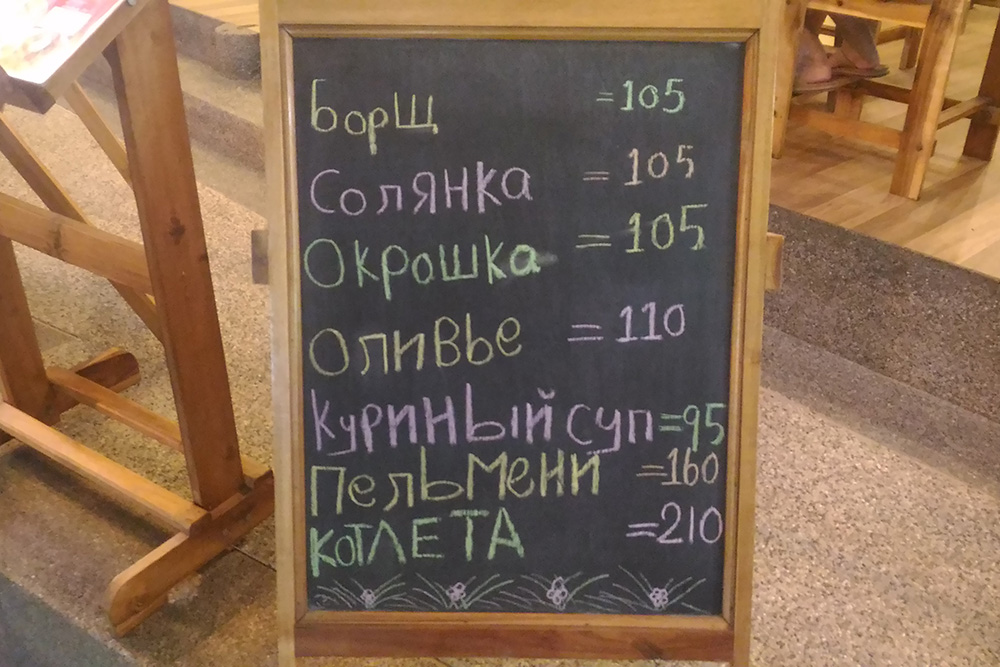 Борщ =105
Солянка = 105
Окрошка = 105
Оливье = 110
Куриный суп =95
Пельмени =160
КОТЛЕТА =210